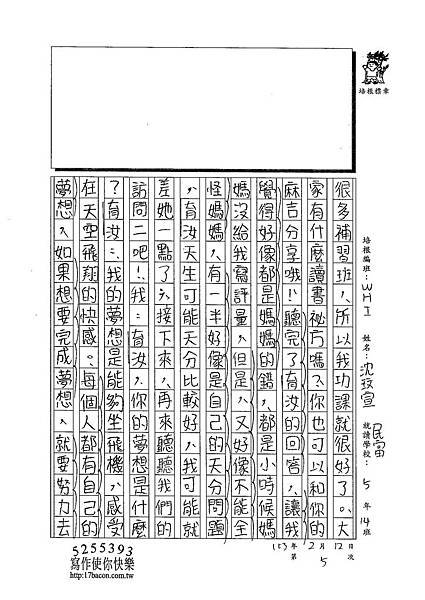 很多補習班,所以我功課就很好了。大
家有什麼讀書祕方嗎?你也可以和你的
麻吉分享哦!聽完了有汝的回答,讓我
覺得好像都是媽媽的錯,都是小時候媽
媽沒給我寫評量,但是,又好像不能全
怪媽媽,有一半好像是自己的天分問題
,有汝天生可能天分比較好,我可能就
差她一點了。接下來,再來聽聽我們的
訪問二吧!我:有汝,你的夢想是什麼
?有汝:我的夢想是能夠坐飛機,感受
在天空飛翔的快感。每個人都有自己的
夢想,如果想要完成夢想,就要努力去
培根標章
培根編班:WHI
姓名:沈玟宣
就讀學校:民富
5年14班
103年2月12日
第5次
5255393
寫作使你快樂
http://17bacon.com.tw